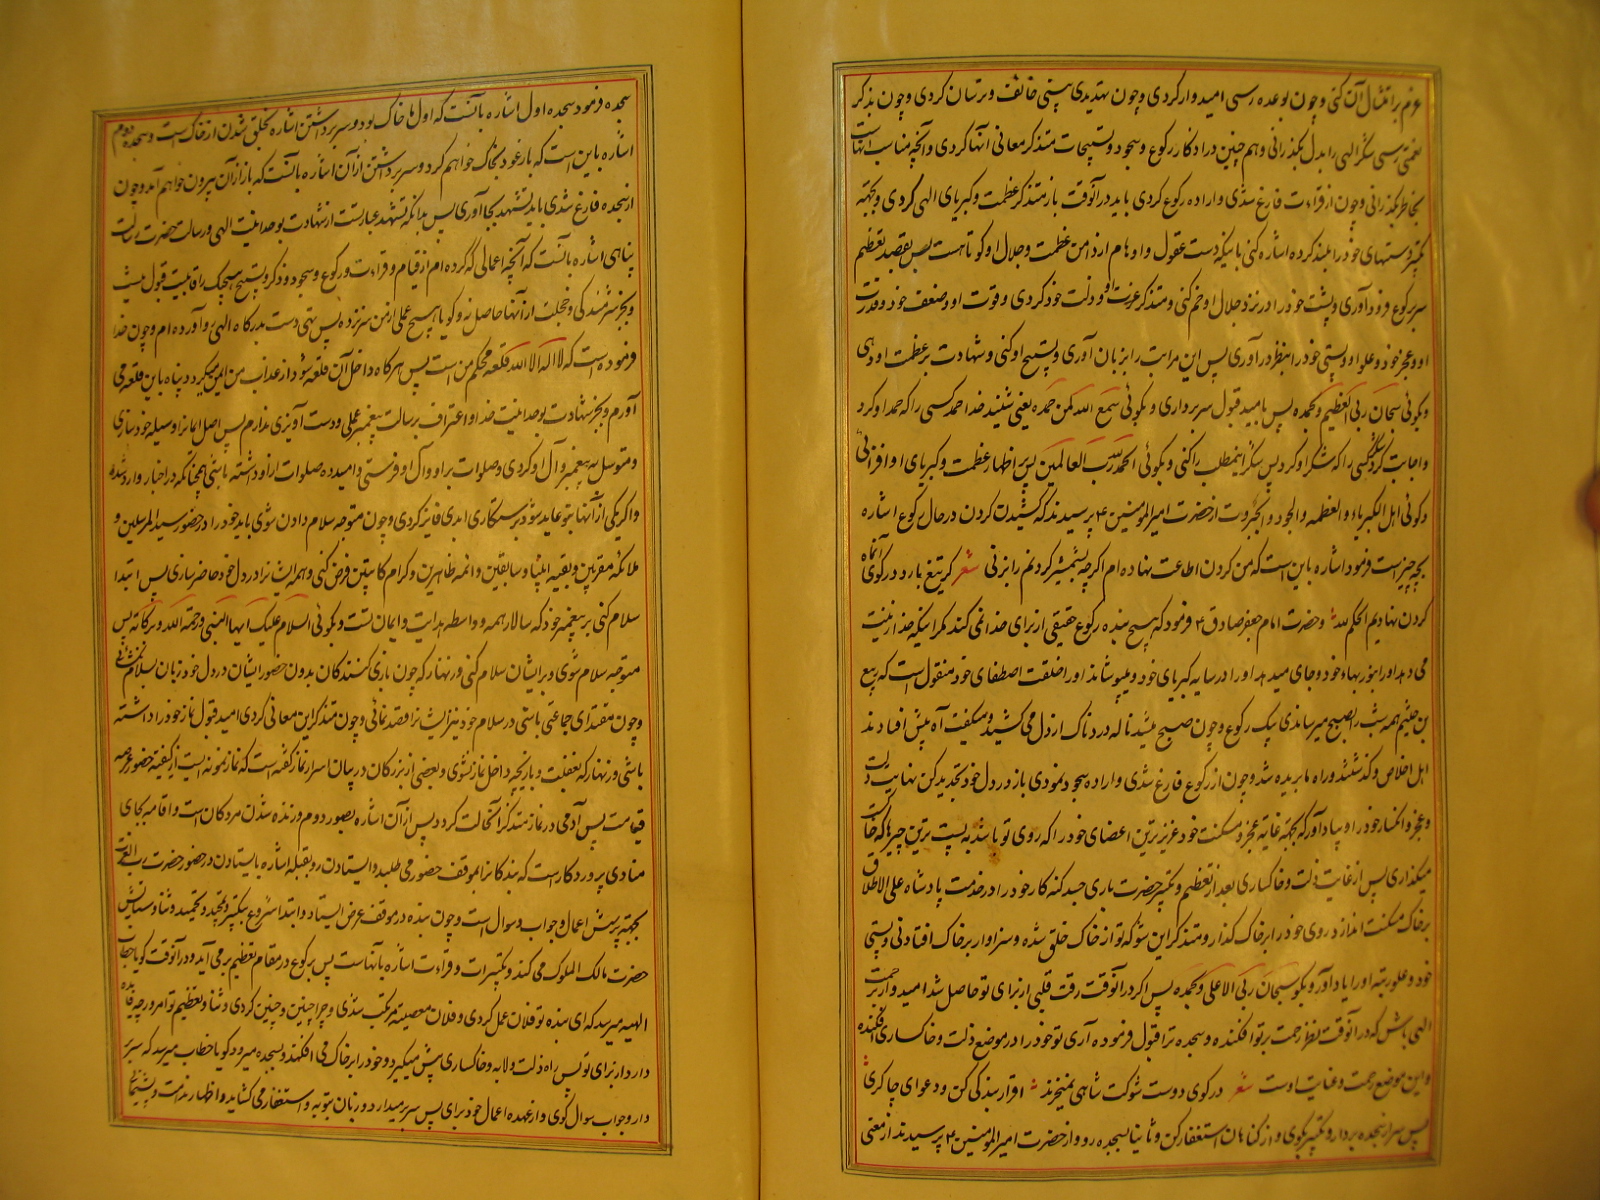 عزم بر امتثال آن کنی و چون بوعده رسی امیدوار کردی و چون بتهدیدی رسی خائف و ترسان کردی و چون بذکر
نعمتی رسی شکر الهی را بدل بگذرانی و هم چنین در اذکار رکوع و سجود و تسبیحات متذکر معانی آنها کردی و آنچه مناسب آنهاست
بخاطر بگذرانی و چون از قراءت فارغ شدی و اراده رکوع کردی باید در آنوقت باز متذکر عظمت و کبریای الهی کردی و بجهته
تکبیر دستهای خود را بلند کرده اشاره کنی باینکه دست عقول و اوهام از دامن عظمت و جلال او کوتاهست پس بقصد تعظیم
سر برکوع فرود آوری و پشت خود را در نزد جلال او خم کنی و متذکر عزت او و ذلت خود کردی و قوت او و ضعف خود و قدرت
او و عجز خود و علو او و پستی خود را بنظر در آوری پس این مراتب را بزبان آوری و تسبیح او کنی و شهادت بر عظمت او دهی
و بکوئی سبحان ربی العظیم و بحمده پس بامید قبول سر برداری و بکوئی سمع الله لمن حمده یعنی شنید خدا حمد کسی را که حمد او کرد
و اجابت کرد شکر کسی را که شکر او کرد پس شکر اینمطلب را کنی و بکوئی الحمد لله رب العالمین پس بر اظهار عظمت و کبریای او افزائی
و کوئی اهل الکبریاء و العظمه و الجود و الجبروت از حضرت امیر المومنین ع پرسیدند که کشیدن کردن در حال رکوع اشاره
بچه چیز است فرمود اشاره باین است که من کردن اطاعت نهاده ام اکرچه بشمشیر کردنم را بزنی شعر کر تیغ بارد در کوی آنماه
کردن نهادیم الحکم لله و حضرت امام جعفر صادق ع فرمود که هیچ بنده رکوع حقیقی از برای خدا نمی کند مکر اینکه خدا زینت
می دهد او را بنور بهاء خود و جای میدهد او را در سایه کبریای خود و میپوشاند او را خلعت اصطفای خود منقول است که ربیع
بن خثیم همه شب را بصبح میرساندی بیک رکوع و چون صبح میشد ناله دردناک از دل می کشید و میکفت آه پیش افتادند
اهل اخلاص و گذشتند و راه ما بریده شد و چون از رکوع فارغ شدی و اراده سجود نمودی باز در دل خود تجدید کن نهایت ذلت
و عجز و انکسار خود را و بیاد آور که بجهته غایة عجز و مسکنت خود عزیزترین اعضای خود را که روی تو باشد به پست ترین چیزها که خاکست
میکذاری پس از غایت ذلت و خاکساری بعد از تعظیم و تکبیر حضرت باری جسد کنه کار خود را در خدمت پادشاه علی الاطلاق
بر خاک مسکنت انداز و روی خود را بر خاک گذار و متذکر این شو که تو از خاک خلق شده و سزاوار بر خاک افتادنی و پستی
خود و علو رتبه او را یاد آور و بکو سبحان ربی الاعلی و بحمده پس اکر در آنوقت رقت قلبی از برای تو حاصل شد امیدوار رحمت
الهی باش که در آنوقت نظر رحمت بر تو افکنده و سجده ترا قبول فرموده آری تو خود را در موضع ذلت و خاکساری افکنده
و این موضع رحمت و عنایت اوست شعر در کوی دوست شوکت شاهی نمیخرند اقرار بندکی کن و دعوای چاکری
پس سر از سجده بردار و تکبیر بکوی و از کناهان استغفار کن و ثانیا بسجده رو و از حضرت امیر المومنین ع پرسیدند از معنی
سجده فرمود سجده اول اشاره بآنست که اول ما خاک بود و سر برداشتن اشاره بخلق شدن از خاکست و سجده دوم
اشاره باین است که باز عود بخاک خواهم کرد و سر برداشتن از آن اشاره بآنست که باز از آن بیرون خواهم آمد و چون
از سجده فارغ شدی باید تشهد بجا آوری پس بدانکه تشهد عبارتست از شهادت بوحدانیت الهی و رسالت حضرت رسالت
پناهی اشاره بآنست که آنچه اعمالی که کرده ام از قیام و قراءت و رکوع و سجود و ذکر و تسبیح هیچیک را قابلیت قبول نیست
و بجز شرمندکی و خجلت از آنها حاصل نه و کویا هیچ عملی از من سر نزده پس تهی دست بدرکاه الهی رو آورده ام و چون خدا
فرموده است که لا اله الا الله قلعه محکم من است پس هر کاه داخل آن قلعه شود از عذاب من ایمن میکردد پناه باین قلعه می
آورم و بجز شهادت بوحدانیت خدا و اعتراف برسالت پیغمبر عملی و دست آویزی ندارم پس اصل ایمانرا وسیله خود سازی
و متوسل به پیغمبر و آل او کردی و صلوات بر او و آل او فرستی و امید ده صلوات از او داشته باشی همچنانکه در اخبار وارد شده
و اکر یکی از آنها بتو عاید شود برستکاری ابدی فایز کردی و چون متوجه سلام دادن شوی باید خود را در حضور سید المرسلین و
ملائکه مقربین و بقیه انبیا و سابقین و ائمه طاهرین و کرام کاتبین فرض کنی و همه ایشانرا در دل خود حاضر سازی پس ابتدا
سلام کنی بر پیغمبر خود که سالار همه و واسطه هدایت و ایمان تست و بکوئی السلام علیک ایها النبی و رحمة الله و برکاته پس
متوجه سلام شوی و بر ایشان سلام کنی و زنهار که چون بازی کنندکان بدون حضور ایشان در دل خود زبان بسلام نکشائی
و چون مقتدای جماعتی باشی در سلام خود نیز ایشانرا قصد نمائی و چون متذکر این معانی کردی امید قبول نماز خود را داشته
باشی و زنهار که بغفلت و بازیچه داخل نماز نشوی و بعضی از بزرکان در بیان اسرار نماز کفته است که نماز نمونه ایست از کیفیة حضور عرصه
قیامت پس آدمی در نماز متذکر آنحالت کردد پس اذان اشاره بصور دوم و زنده شدن مردکان است و اقامه بجای
منادی پروردکار است که بندکانرا بموقف حضور می طلبد و ایستادن رو بقبله اشاره بایستادن در حضور حضرت رب العزت
بجهته پرسش اعمال و جواب و سوال است و چون بنده در موقف عرض ایستاد و ابتدا شروع بتکبیر و تمجید و تحمید و ثنا و ستایش
حضرت مالک الملوک می کند و تکبیرات و قراءت اشاره بآنهاست پس برکوع در مقام تعظیم بر می آید و در آنوقت کویا خطاب
الهیه میرسد که ای بنده تو فلان عمل کردی و فلان معصیته مرتکب شدی و چرا چنین و چنین کردی و ثنا و تعظیم تو امروز چه فایده
دارد از برای تو پس راه ذلت و لابه و خاکساری پیش میکیرد و خود را بر خاک می افکند و بسجده میرود کویا خطاب میرسد که سر بر
دار و جواب سوال کوی و از عهده اعمال خود برای پس سر بر میدارد و زبان بتوبه و استغفار می کشاید و اظهار ندامت و پشیمانی